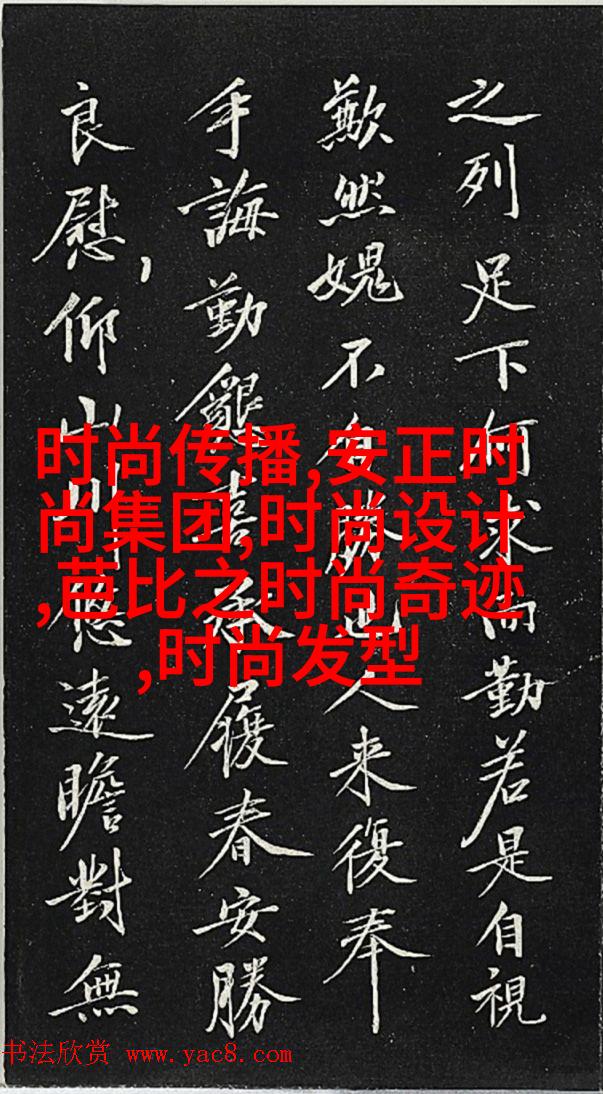 之列足下何求而勤若是自視
歉然媿不勝也人来復奉
手誨勤懇喜承履春安勝
良慰,仰山川悠遠瞻對無
时尚传播,安正时
尚集团,时尚设计
,芭比之时尚奇迹
,时尚发型
书法欣赏 www.yac8.com